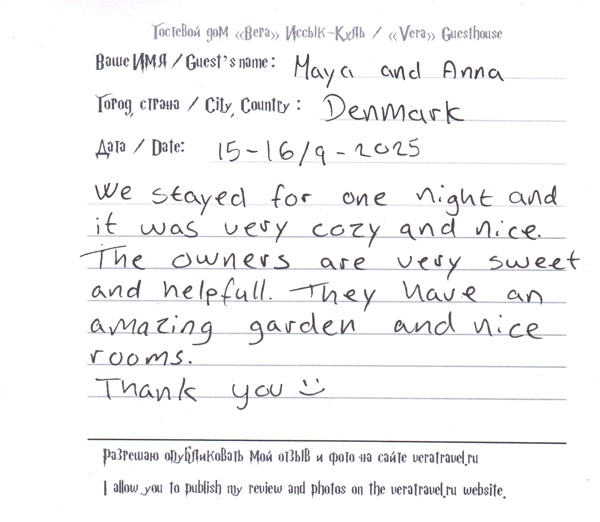 Гостевой дом «Вера» Иссык-Куль / «Vera» Guesthouse
Ваше ИМЯ / Guest's name: Maya and Anna
Город, страна / City, Country: Denmark
Дата / Date: 15-16/9-2025
We stayed for one night and
it was very cozy and nice.
The owners are very sweet
and helpfull. They have an
amazing garden and nice
rooms.
Thank you :)
Разрешаю опубликовать мой отзыв и фото на сайте veratravel.ru
I allow you to publish my review and photos on the veratravel.ru website.